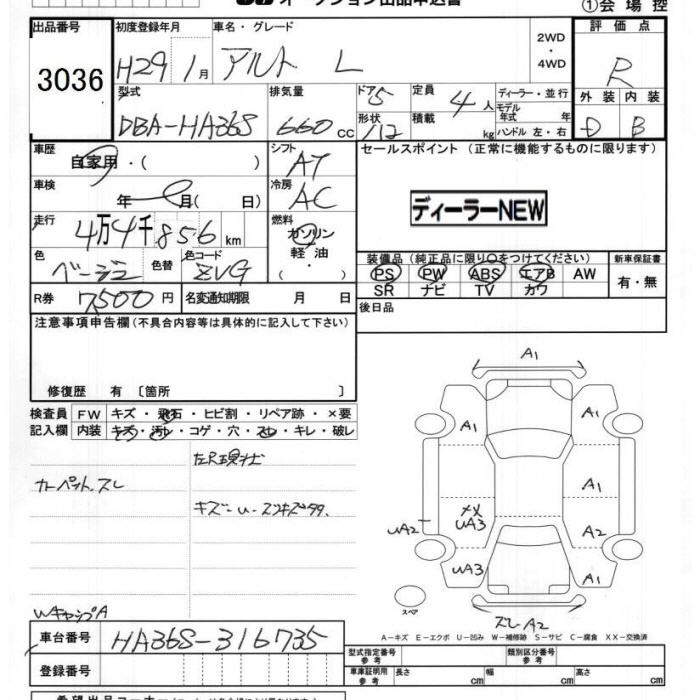 オークション出品申込書
①会場控
出品番号 初度登録年月 車名・グレード 評価点
3036 H29 1月 アルト L 2WD・4WD R
型式 排気量 ドア 5 定員 4人 ディーラー・並行 外装 内装
DBA-HA36S 660cc 形状 積載 kg モデル年式 年 ハンドル 左・右 D B
車歴 自家用・( ) シフト AT セールスポイント(正常に機能するものに限ります)
車検 年 月( 日) 冷房 AC
ディーラーNEW
走行 4万4千856km 燃料 ガソリン 軽油・( )
色 ベージュ 色替 色コード ZVG
装備品(純正品に限り○をつけてください) 新車保証書
PS PW ABS エアB AW 有・無
SR ナビ TV カワ
R券 7500円 名変通知期限 月 日
後日品
注意事項申告欄(不具合内容等は具体的に記入して下さい)
修復歴 有〔箇所 〕
検査員 FW キズ・飛石・ヒビ割・リペア跡・×要
記入欄 内装 キズ・汚レ・コゲ・穴・スレ・キレ・破レ
カーペットスレ
キズ-U-
WキャップA
A1
A1
A1
A1
メメ
UA3
UA2
A2
UA3
A1
スペア
スレA2
A-キズ E-エクボ U-凹み W-補修跡 S-サビ C-腐食 XX-交換済
車台番号 HA36S-316735
登録番号
型式指定番号 参考 類別区分番号 参考
車庫証明用 参考 長さ cm 幅 cm 高さ cm